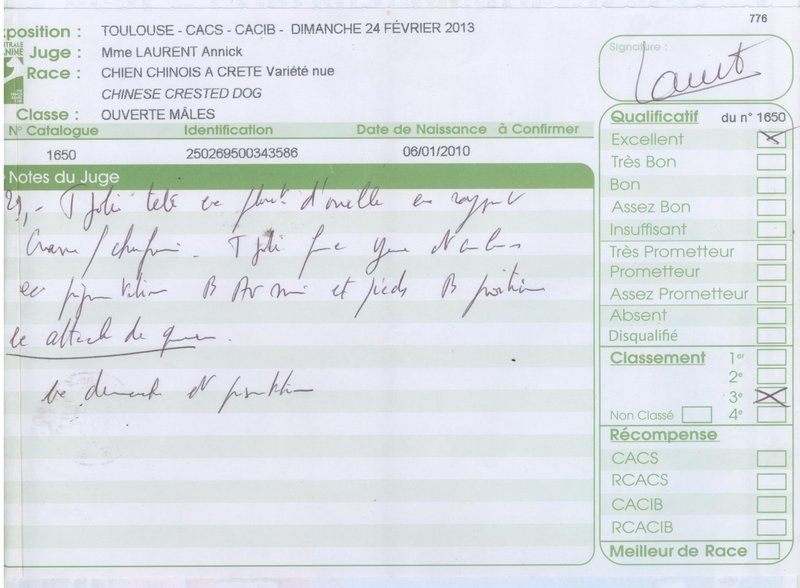 776
xposition : TOULOUSE - CACS - CACIB - DIMANCHE 24 FÉVRIER 2013
Juge : Mme LAURENT Annick
Race : CHIEN CHINOIS A CRETE Variété nue
CHINESE CRESTED DOG
Classe : OUVERTE MÂLES
N° Catalogue Identification Date de Naissance à Confirmer
1650 250269500343586 06/01/2010
Notes du Juge
T jolie tete d'oreille en rapport
Crane / chanfrein. T joli
B et pieds B position
attache de queue.
demarche et présentation
Signature :
Laurent
Qualificatif du n° 1650
Excellent
Très Bon
Bon
Assez Bon
Insuffisant
Très Prometteur
Prometteur
Assez Prometteur
Absent
Disqualifié
Classement 1er
2e
3e
Non Classé 4e
Récompense
CACS
RCACS
CACIB
RCACIB
Meilleur de Race